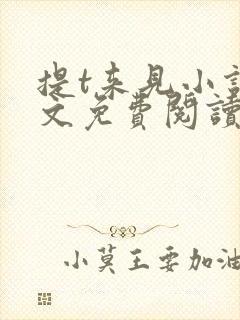 提t来见小
文免費閱讀
小莫王要加油